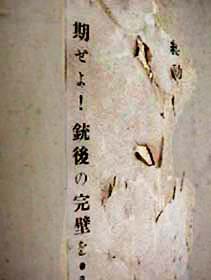 総動
期せよ！銃後の完璧を